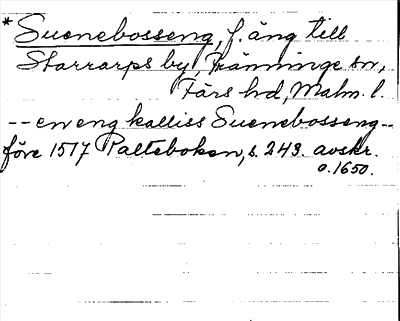 * Suenebosseng, f. äng till
Starrarps by, Tranninge sn,
Färs hd, Malm. l.
-- en eng kalliss Suenebosseng --
före 1517 Palteboken, s. 243. avskr.
o. 1650.